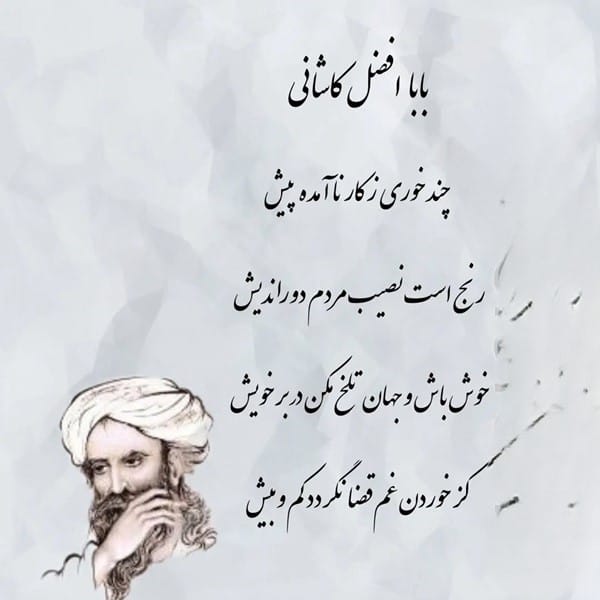 بابا افضل کاشانی
چند خوری ز کار ناآمده پیش
رنج است نصیب مردم دوراندیش
خوش باش و جهان تلخ مکن در بر خویش
کز خوردن غم قضا نگردد کم و بیش